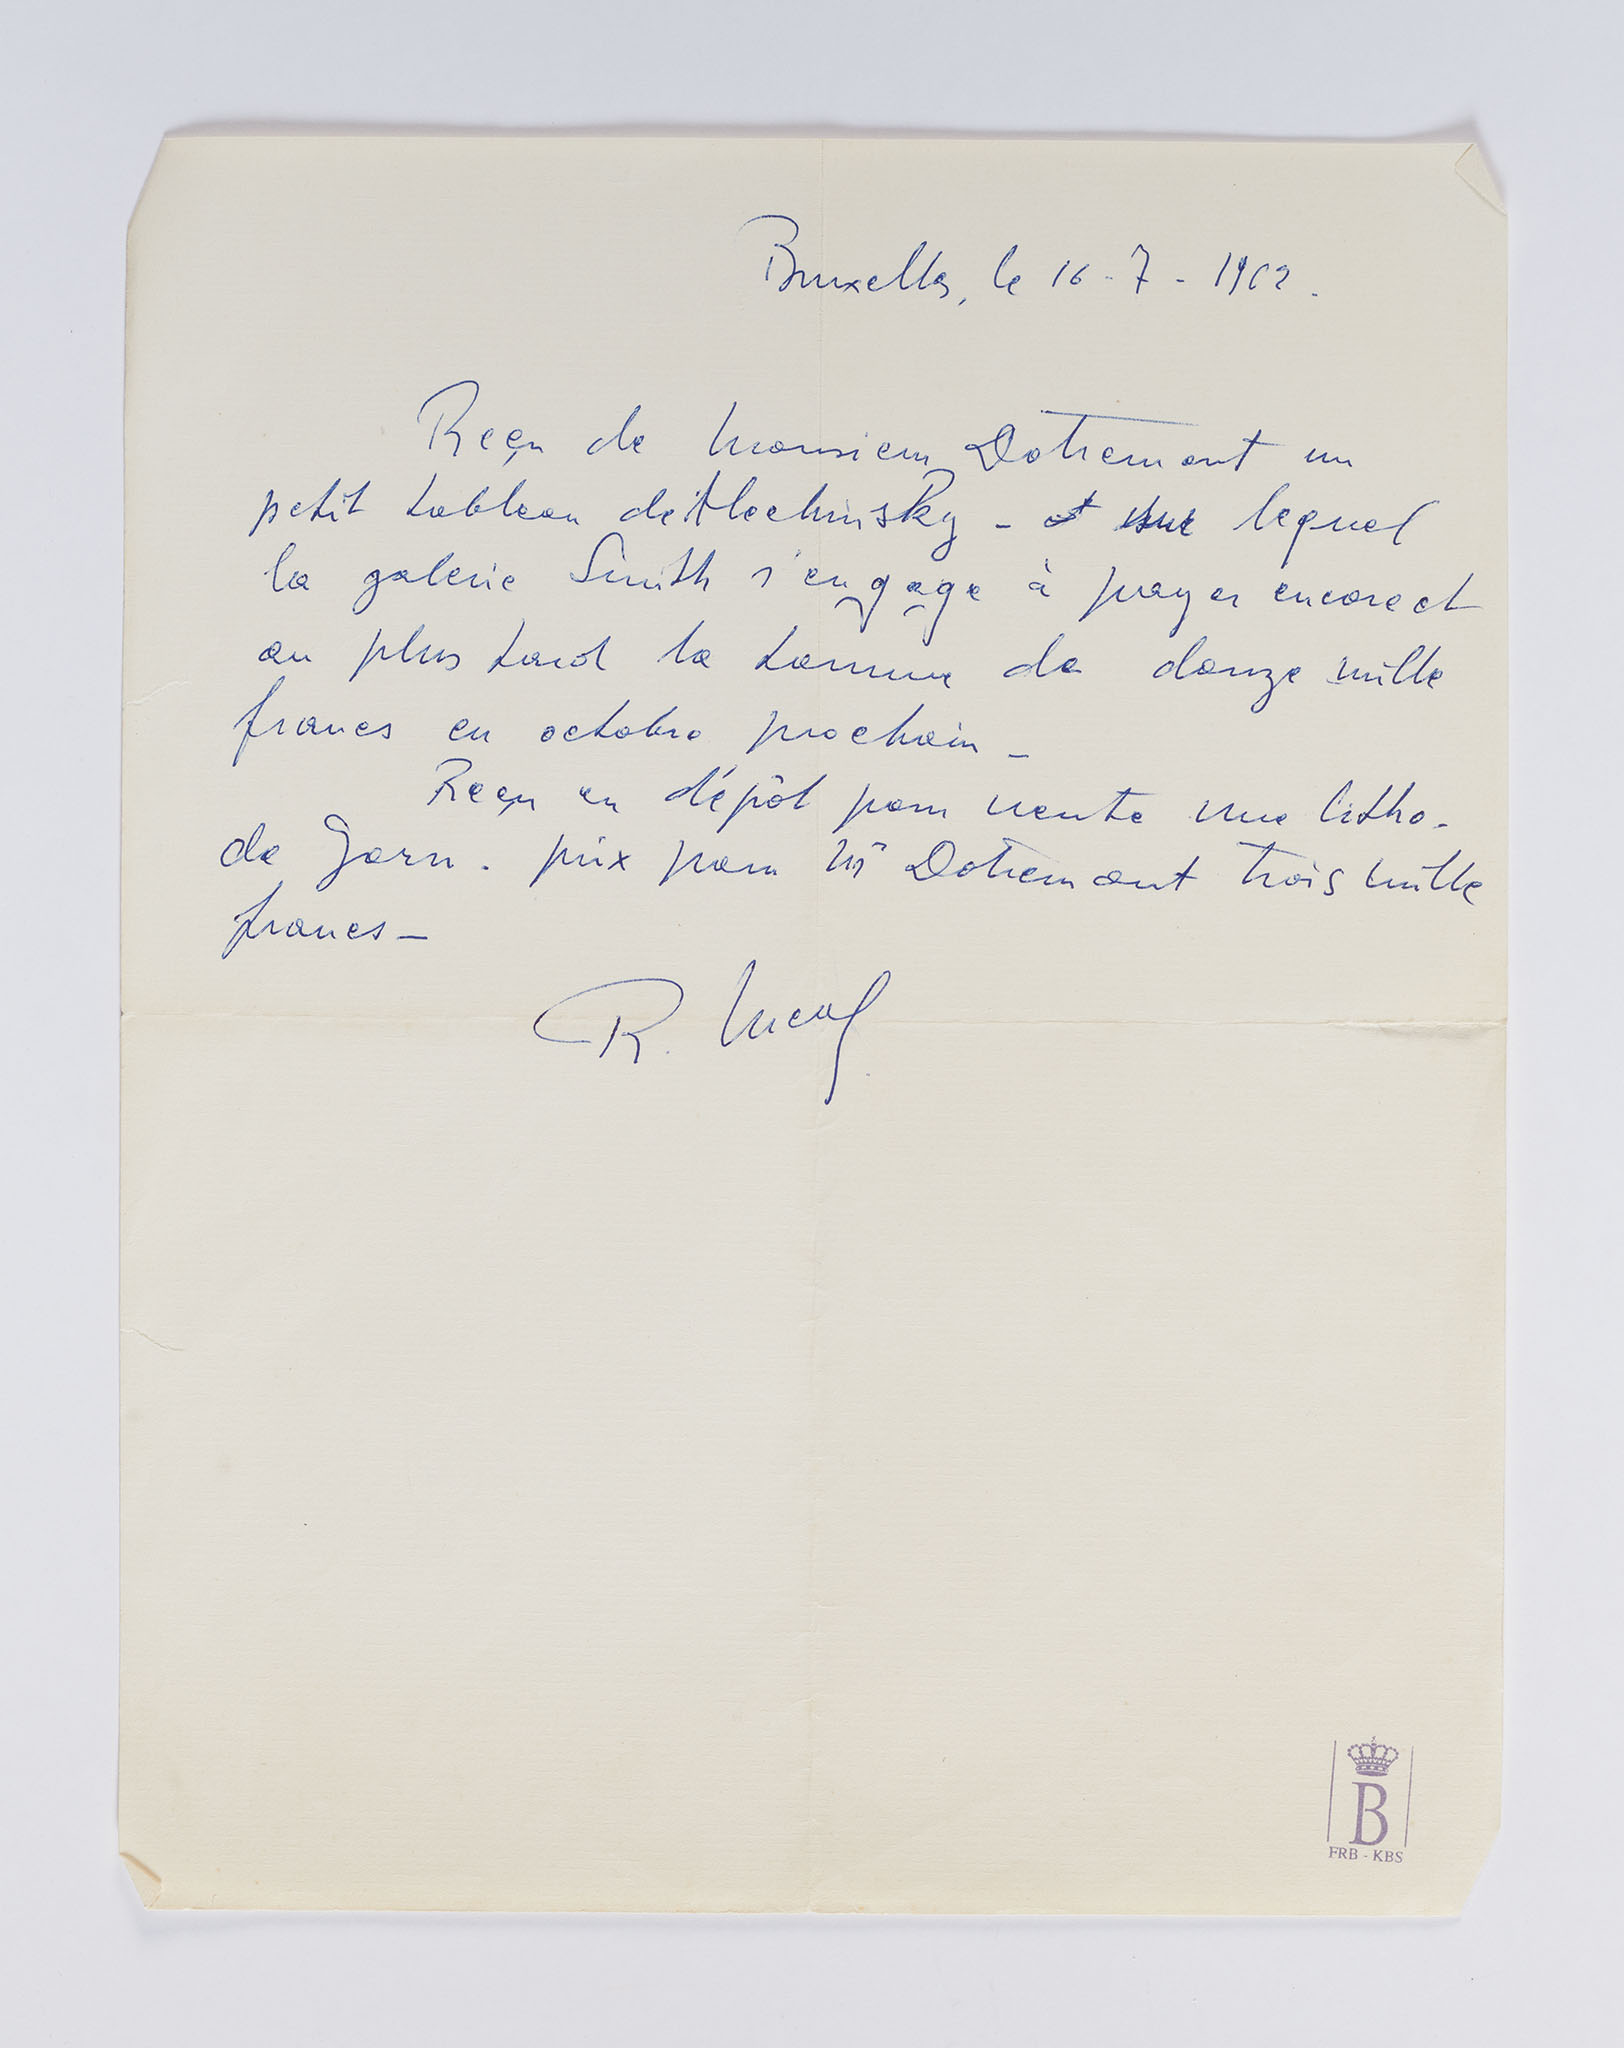 Bruxelles, le 16-7-1962.
Reçu de Monsieur Dotremont un
petit tableau de Alechinsky - et sur lequel
la galerie Smith s'engage à payer encore et
au plus tard la somme de douze mille
francs en octobre prochain -
Reçu en dépôt pour vente une litho.
de Jorn. prix pour Mr Dotremont trois mille
francs -
R.
B
FRB - KBS